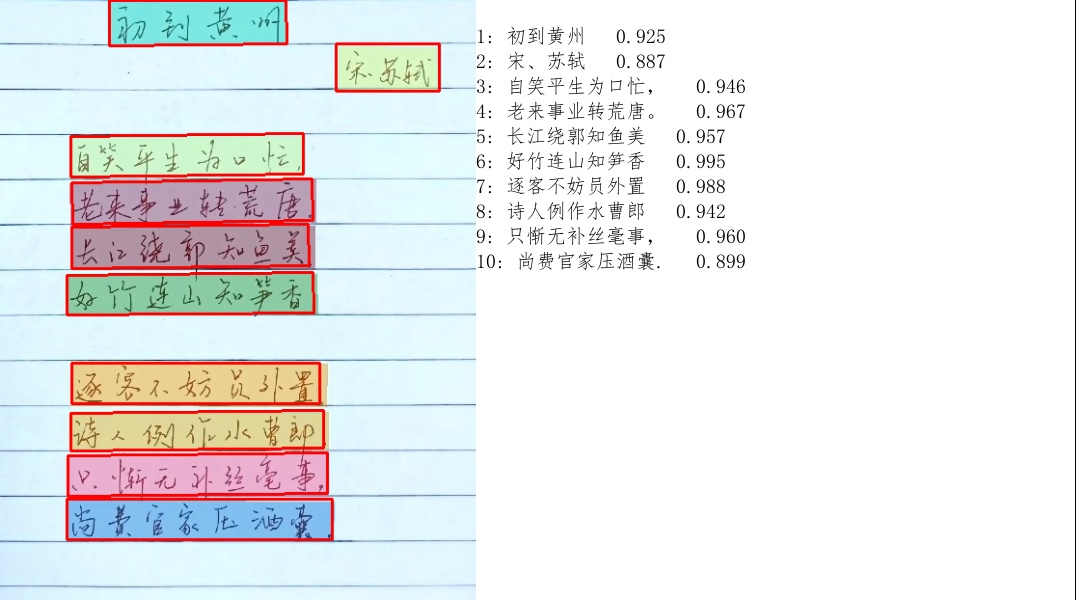 初到黄州
宋、苏轼
自笑平生为口忙,
老来事业转荒唐.
长江绕郭知鱼美
好竹连山知笋香
逐客不妨员外置
诗人例作水曹郎
只惭无补丝毫事,
尚费官家压酒囊.
1: 初到黄州 0.925
2: 宋、苏轼 0.887
3: 自笑平生为口忙, 0.946
4: 老来事业转荒唐。 0.967
5: 长江绕郭知鱼美 0.957
6: 好竹连山知笋香 0.995
7: 逐客不妨员外置 0.988
8: 诗人例作水曹郎 0.942
9: 只惭无补丝毫事, 0.960
10: 尚费官家压酒囊. 0.899